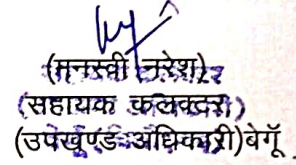 (मनस्वी नरेश)
(सहायक कलक्टर)
(उपखण्ड अधिकारी)बेगूँ